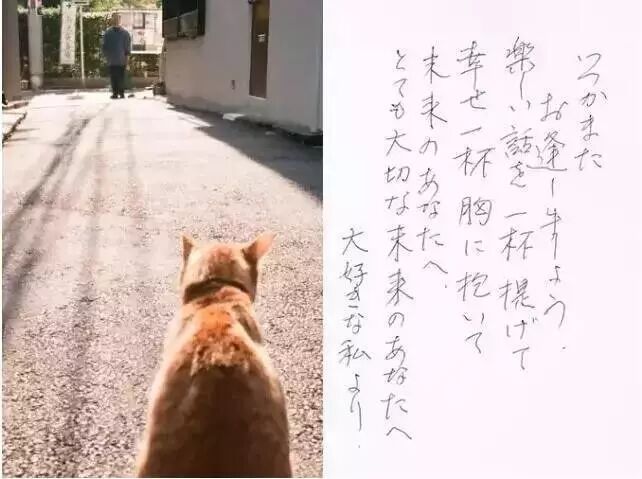 いつかまた
お逢しましょう.
楽しい話を一杯提げて
幸せ一杯胸に抱いて
未来のあなたへ.
とても大切な未来のあなたへ
大好きな私より.